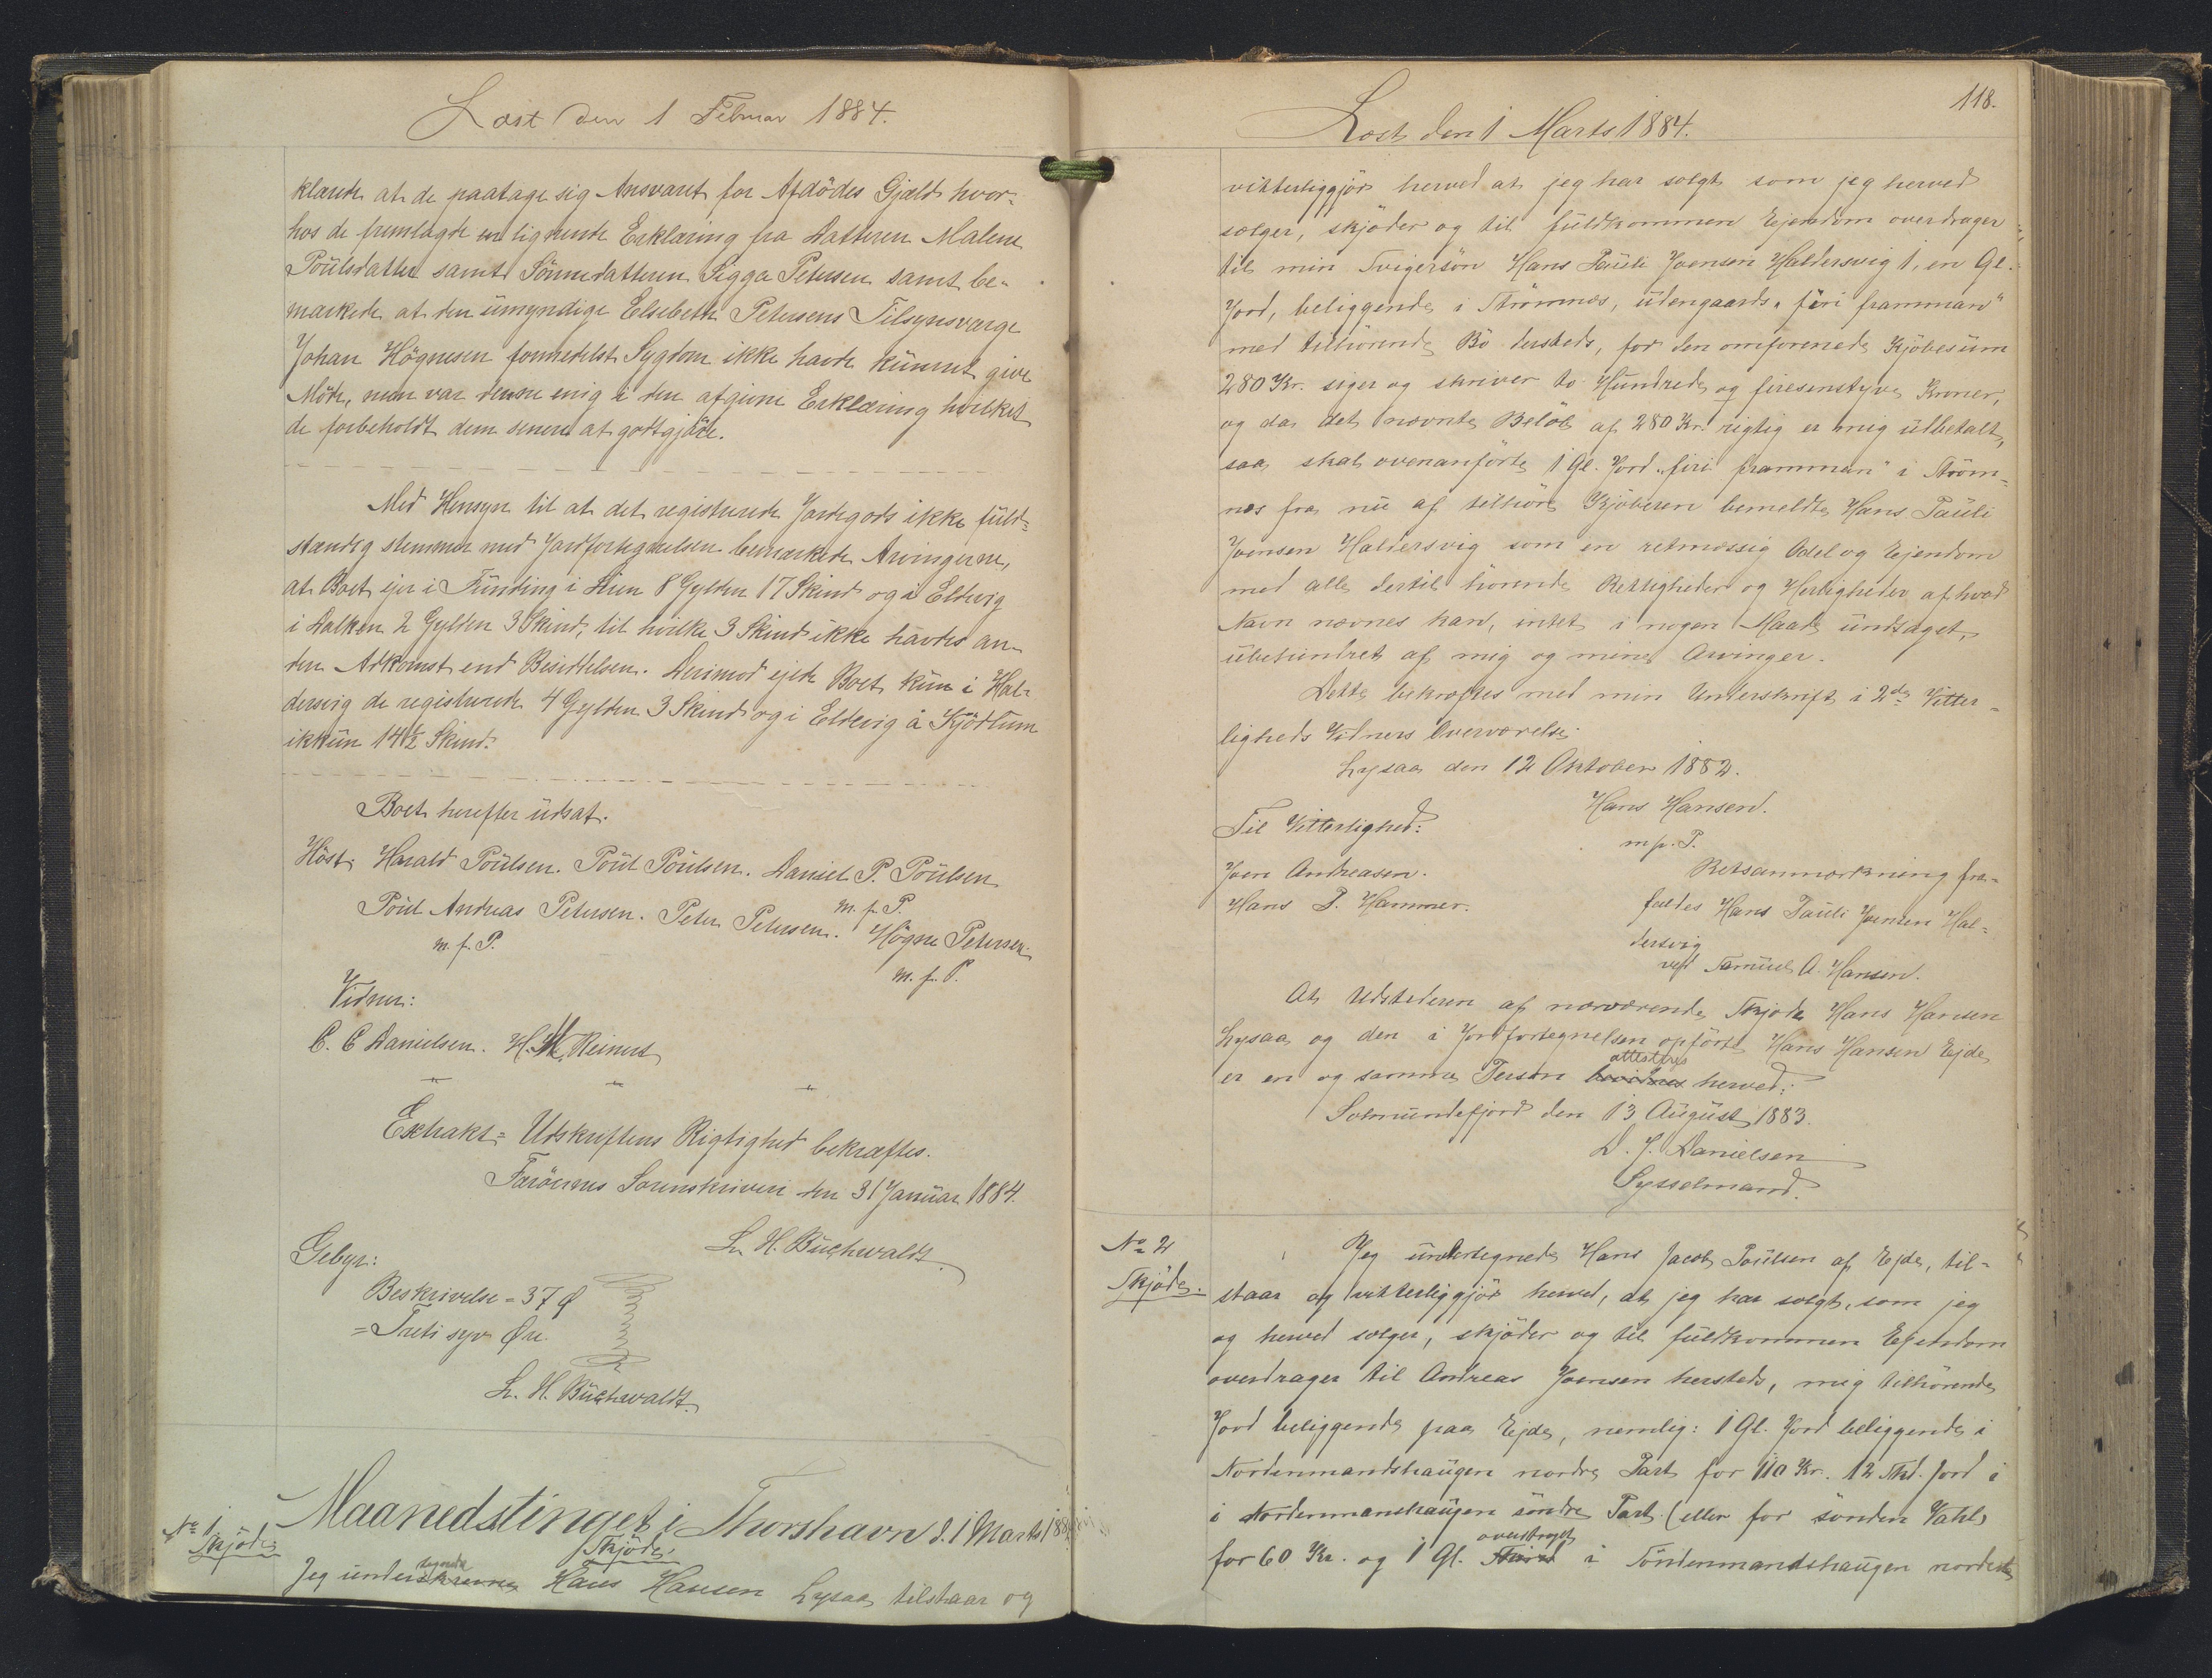 Læst den 1 Februar 1884.
klarede at de paatage sig Ansvaret for Afdödes Gjæld hvor-
hos de fremlagde en lignende Erklæring fra Datteren Malene
Poülsdatter samt Sönnedatteren Sigga Petersen samt be-
mærkede at den ümyndige Elsebeth Petersens Tilsynsværge
Johan Högnesen formedelst Sygdom ikke havde künnet give
Möde, men var denne enig i den afgivne Erklæring hvilket
de forbeholdt dem senere at godtgjöre.
Med Hensyn til at det registrerede Jordegods ikke füld-
stændig stemmer med Jordfortegnelsen bemærkede Arvingerne,
at Boet ejer i Fünding i Lien 8 Gylden 17 Skind og i Eldevig
i Dalken 2 Gylden 3 Skind, til hvilke 3 Skind ikke havdes an-
den Adkomst end Besiddelsen. Derimod ejede Boet kün i Hal-
dersvig de registrerede 4 Gylden 3 Skind og i Eldevig á Kjödlum
ikkün 14½ Skind.
Boet herefter üdsat.
Höst. Harald Poülsen. Poül Poülsen. Daniel P. Poülsen
m. f. P.
Poül Andreas Petersen. Peter Petersen. Högne Petersen
m. f. P.
m. f. P.
Vidner:
C. C Danielsen. H. M. Reinert
Extrakt-Udskriftens Rigtighed bekræftes.
Færöernes Sorenskriveri den 31 Januar 1884.
L. H. Büchwaldt.
Gebyr:
Beskrivelse = 37 Ø
= Treti syv Øre.
L. H. Büchwaldt.
Maanedstinget i Thorshavn d. 1 Marts 188
No 1
Skjöde
Skjöde.
Jeg underskrevne tegnede Hans Hansen Lysaa, tilstaar og
118.
Læst den 1 Marts 1884.
vitterliggjör herved at jeg har solgt som jeg herved
sælger, skjöder og til füldkommen Ejendom overdrager
til min Svigersön Hans Paüli Joensen Haldersvig 1, en Gl.
Jord, beliggende i Strömnæs, üdengaards "firi framman"
med tilhörende Bö dersteds, for den omforenede Kjöbesüm
280 Kr. siger og skriver to Hündrede og firesenstyve Kroner,
og da det nævnte Belöb af 280 Kr. rigtig er mig üdbetalt,
saa skal ovenanförte 1 Gl. Jord "firi framman" i Ström-
næs fra nü af tilhöre Kjöberen bemeldte Hans Paüli
Joensen Haldersvig som en retmæssig Odel og Ejendom
med alle dertil hörende Rettigheder og Herligheder af hvad
Navn nævnes kan, intet i nogen Maade ündtaget,
übehindret af mig og mine Arvinger.
Dette bekræftes med min Underskrift i 2de Vitter-
ligheds Vidners Overværelse.
Lysaa den 12 Oktober 1882.
Hans Hansen.
m. p. P.
Til Vitterlighed:
Joen Andreasen.
Hans P. Hammer.
Retsanmærkning fra-
faldes Hans Paüli Joensen Hal-
dersvig
ved Samüel A. Hansen.
At Udstederen af nærværende Skjöde Hans Hansen
Lysaa og den i Jordfortegnelsen opförte Hans Hansen Ejde
er en og samme Person bevidnes attesteres herved:
Selmündefjord den 13 Aügüst 1883.
D. J. Danielsen
Sysselmand.
No 2
Skjöde.
Jeg ündertegnede Hans Jacob Poülsen af Ejde, til-
staar og vitterliggjör herved, at jeg har solgt, som jeg
og herved sælger, skjöder og til füldkommen Ejendom
overdrager til Andreas Joensen hersteds, mig tilhörende
Jord beliggende paa Ejde, nemlig: 1 Gl. Jord beliggende i
Nordenmandshaügen nordre Part for 110 Kr. 12 Skd. Jord i
i Nordenmanshaügen söndre Part (eller for sönden Vatn)
for 60 Kr. og 1 Gl. overstreget i Söndenmandshaügen nordeste